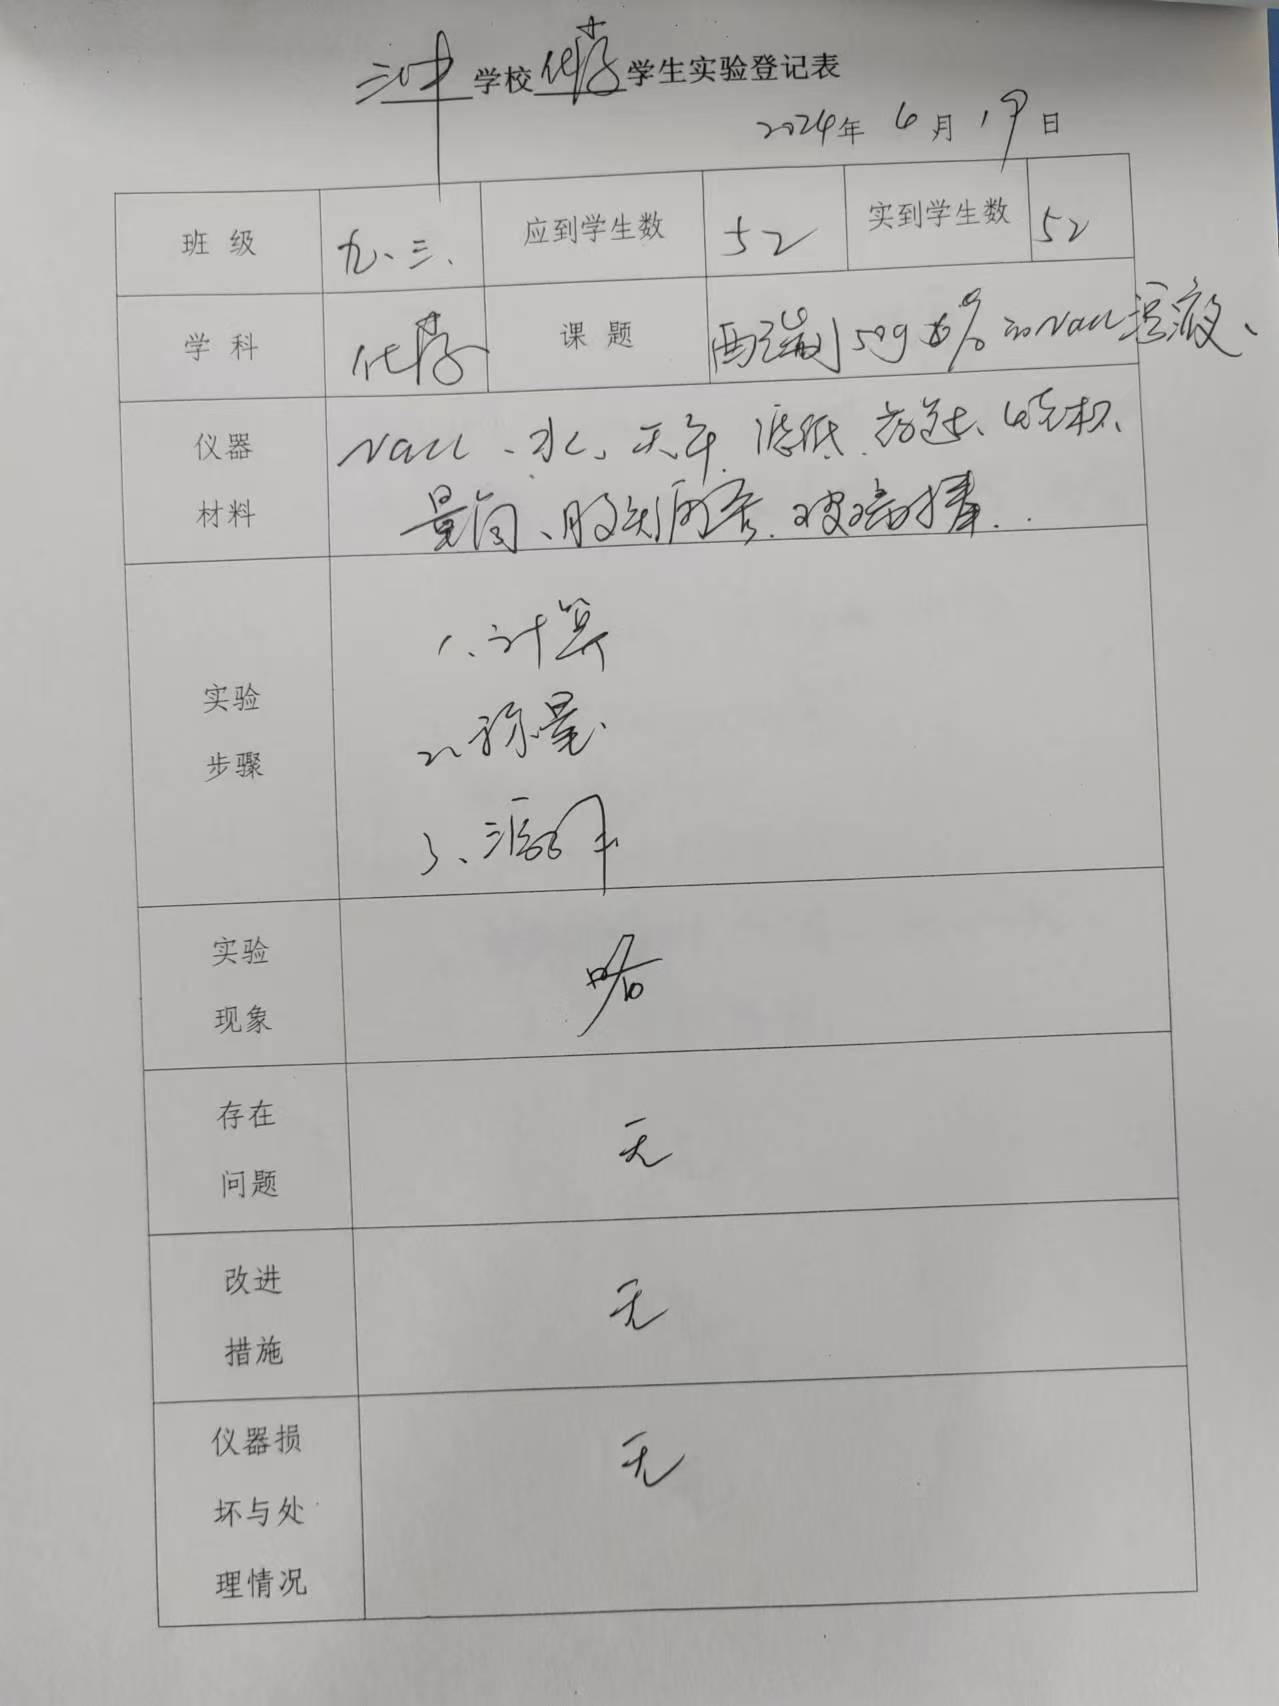 三中学校化学学生实验登记表
2024年6月19日
班级 九、三、 应到学生数 52 实到学生数 52
学科 化学 课题 配制50g 6%的NaCl溶液、
仪器 NaCl、水、天平、滤纸、药匙、烧杯、
材料 量筒、胶头滴管、玻璃棒..
1、计算
实验
2、称量、
步骤
3、溶解
实验 略
现象
存在 无
问题
改进 无
措施
仪器损 无
坏与处
理情况